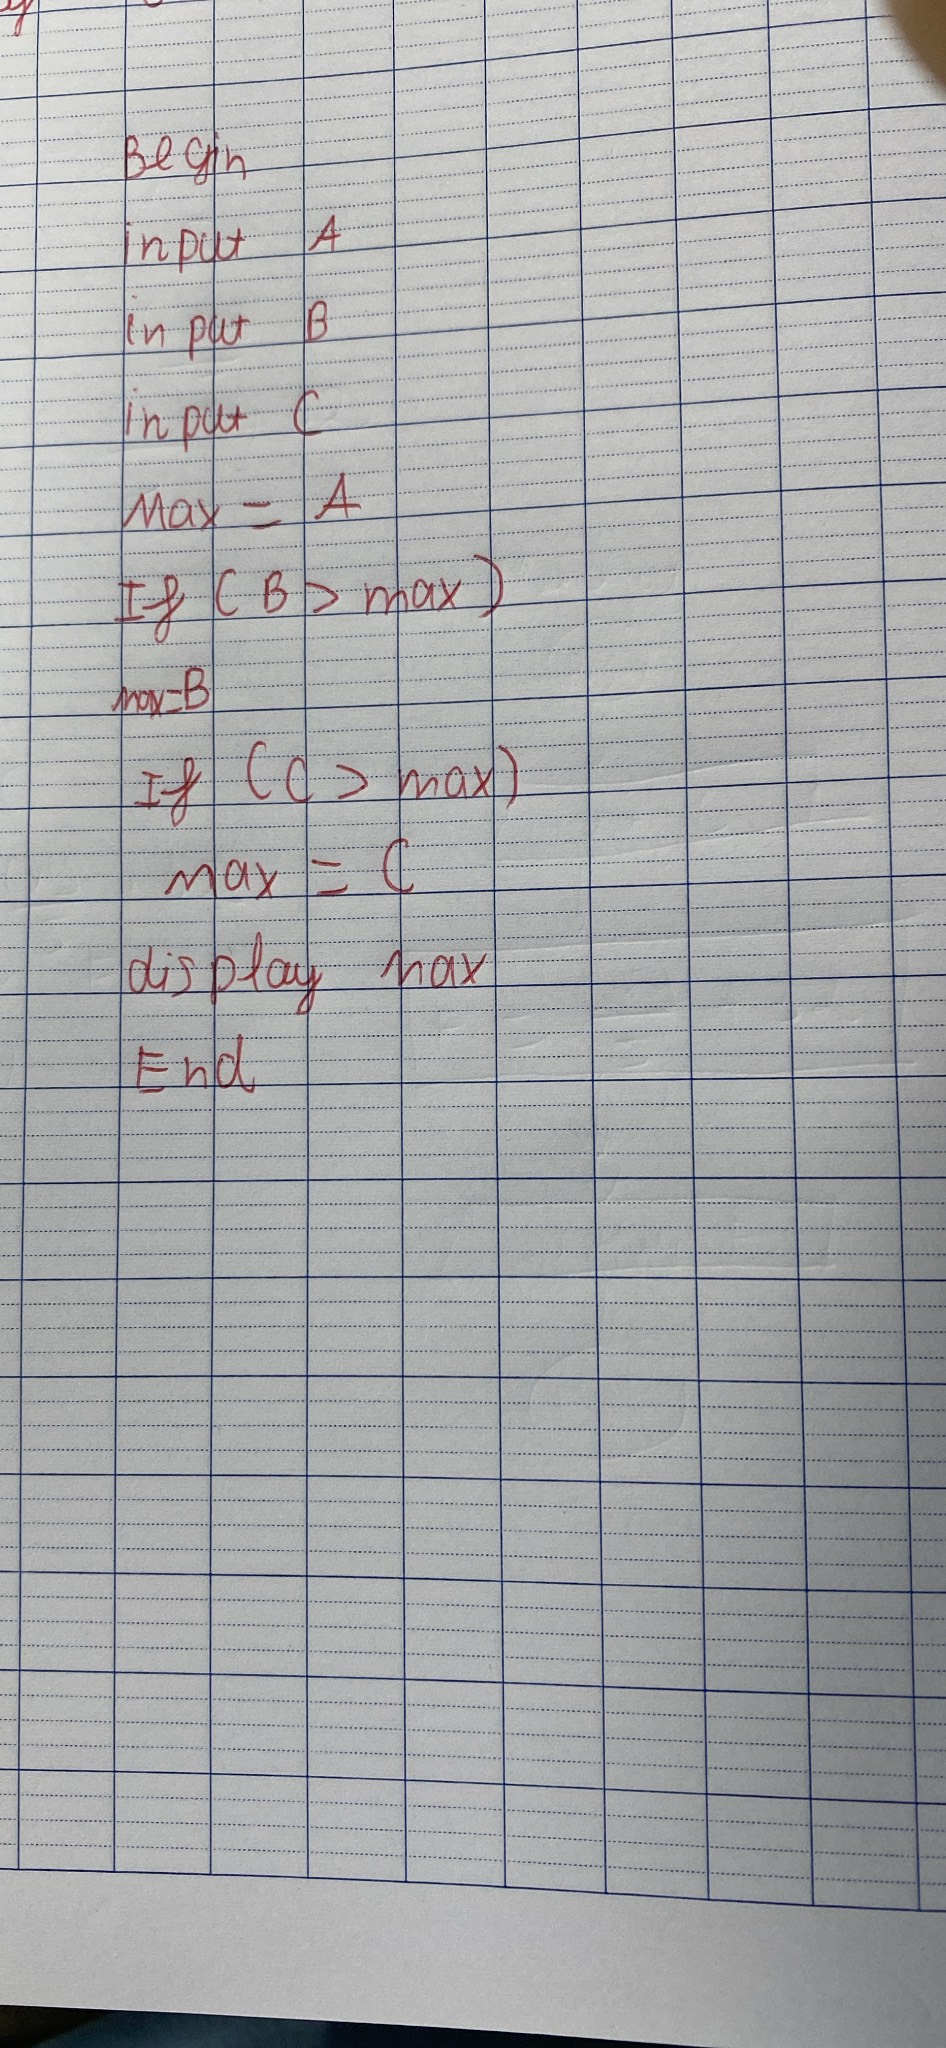 Begin
input A
input B
input C
Max = A
If (B > max)
max=B
If (C > max)
max = C
display max
End